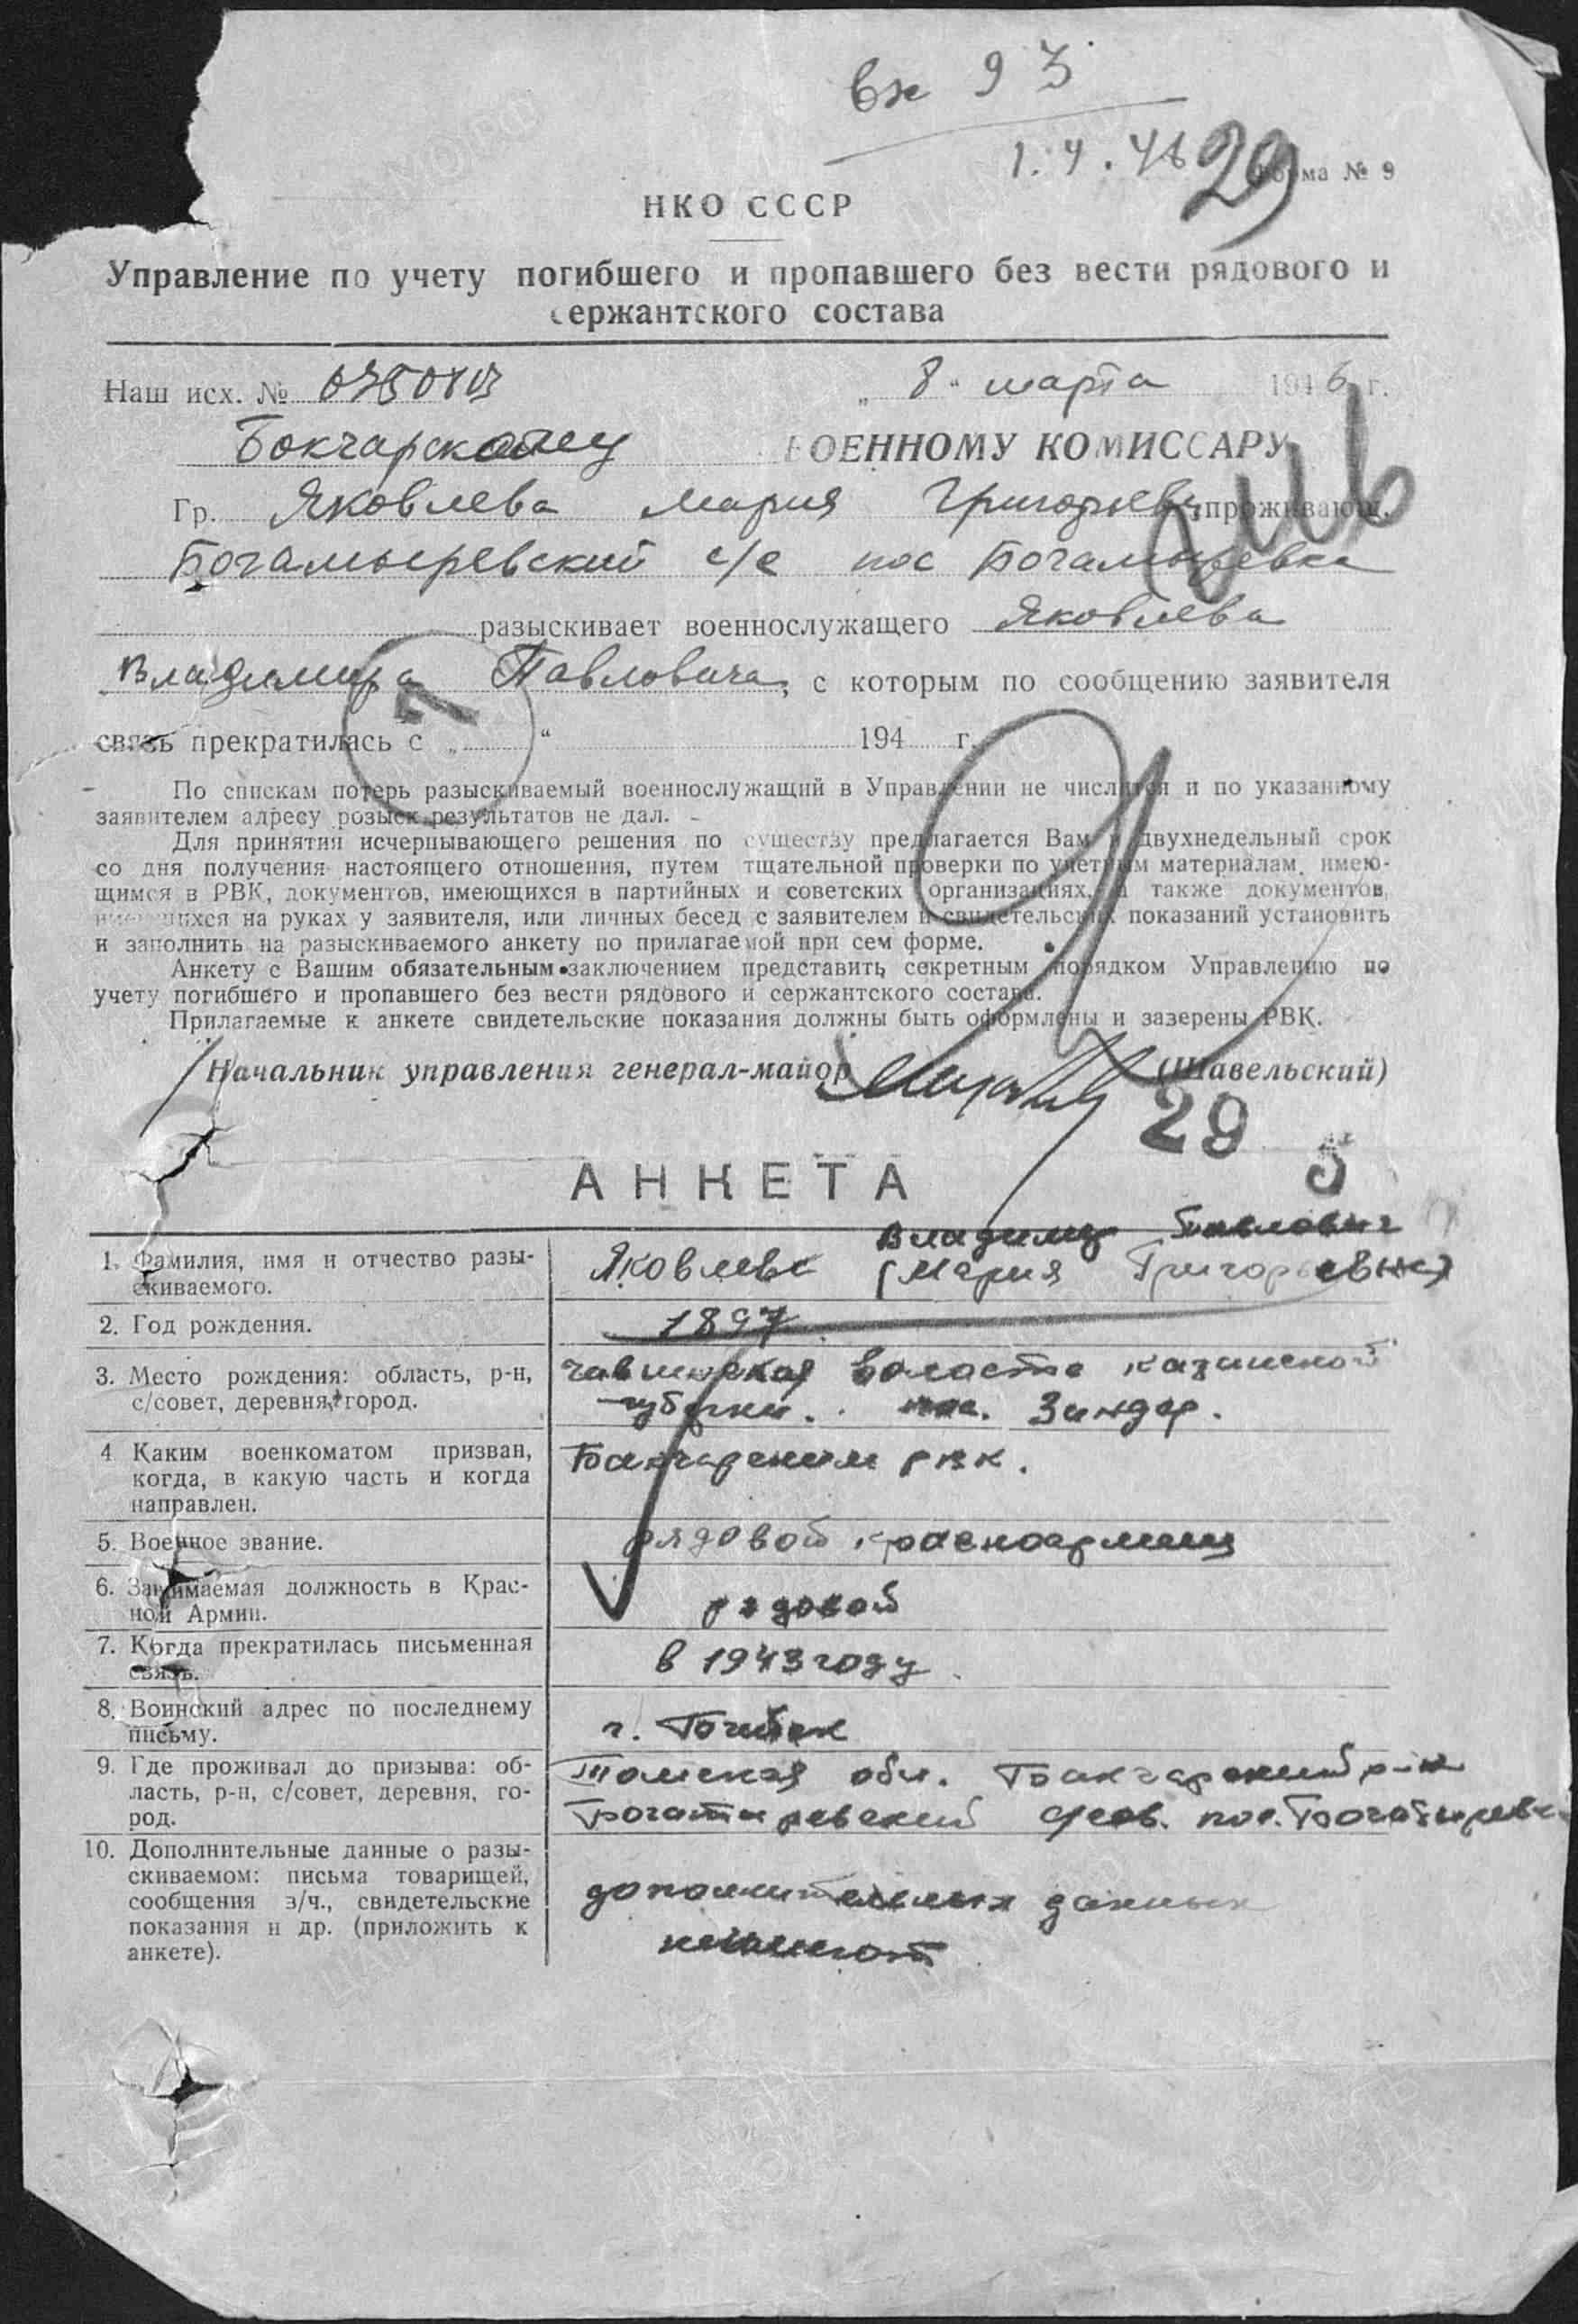 вх 93
1.4.46 29
Форма № 9
НКО СССР
Управление по учету погибшего и пропавшего без вести рядового и
сержантского состава
Наш исх. № „ 8 " марта 1946 г.
Бокчарскому ВОЕННОМУ КОМИССАРУ
Гр. Яковлева Мария Григорьевн, проживающ.
Богатыревский с/с пос Богатыревка
разыскивает военнослужащего Яковлева
Владимира Павловича, с которым по сообщению заявителя
связь прекратилась с „ " 194 г.
1
По спискам потерь разыскиваемый военнослужащий в Управлении не числится и по указанному
заявителем адресу розыск результатов не дал.
Для принятия исчерпывающего решения по существу предлагается Вам в двухнедельный срок
со дня получения настоящего отношения, путем тщательной проверки по учетным материалам, имею-
щимся в РВК, документов, имеющихся в партийных и советских организациях, а также документов,
имеющихся на руках у заявителя, или личных бесед с заявителем и свидетельских показаний установить
и заполнить на разыскиваемого анкету по прилагаемой при сем форме.
Анкету с Вашим обязательным заключением представить секретным порядком Управлению по
учету погибшего и пропавшего без вести рядового и сержантского состава.
Прилагаемые к анкете свидетельские показания должны быть оформлены и зазерены РВК.
Начальник управления генерал-майор (Шавельский)
29
5
АНКЕТА
Владимир Павлович
1. Фамилия, имя и отчество разы- Яковлева (Мария Григорьевна)
скиваемого.
2. Год рождения. 1897
3. Место рождения: область, р-н, волость казанской
с/совет, деревня, город. губерни. пос. Зиндор.
4 Каким военкоматом призван, Бакчарским рвк.
когда, в какую часть и когда
направлен.
5. Военное звание. рядовой красноармеец
6. Занимаемая должность в Крас- рядовой
ной Армии.
7. Когда прекратилась письменная в 1943 году
связь.
8. Воинский адрес по последнему
письму. г.
9. Где проживал до призыва: об- Томская обл. Бакчарский р-н
ласть, р-н, с/совет, деревня, го- Богатыревский с/сов. пос. Богатыревк
род.
10. Дополнительные данные о разы-
скиваемом: письма товарищей, дополнительных данных
сообщения в/ч., свидетельские
показания и др. (приложить к
анкете).